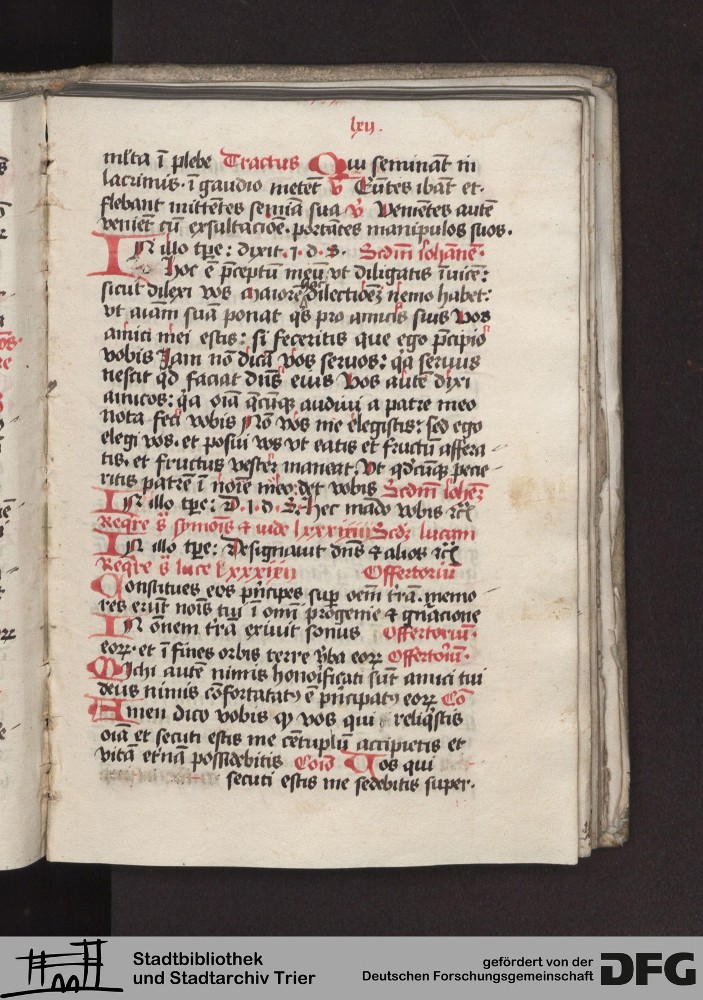 lxij.
ml̄ta ī plebe Tractus Qui semināt in
lacrimis. ī gaudio metēt v̄ Eūtes ibāt et.
flebant mittētes semīa sua v̄ Venietes autē
veniēt cū exsultacōe. portātes manipulos suos.
IN illo tp̄e: dixit. i. d. s. Scdm̄ Iohānē.
Hoc ē p̄ceptū meū vt diligatis īuicē:
sicut dilexi vos Maiorē dilectiōeʒ nemo habet:
vt aīam suā ponat qͥs pro amicis suis Vos
amici mei estis: si feceritis que ego p̄cipio
vobis Iam nō dicā vos seruos: qͥa seruus
nescit qd̄ faciat dn̄s eius Vos autē dixi
amicos: qͥa oīa q̄cūqʒ audiui a patre meo
nota feci vobis Nō vos me elegistis: sed ego
elegi vos. et posui vos vt eatis et fructū affera
tis. et fructus vester maneat. Vt qd̄cūqʒ pecie
ritis patrē ī noīe meo: det vobis Scdm̄ Iohēʒ
IN illo tp̄e: D. i. d. s. Hec mādo vobis rc̄
Reqre s̄ symonis ⁊ iude lxxxiiii Scdʒ lucam
IN illo tp̄e: Designauit dn̄s ⁊ alios rc̄
Reqre s̄ luce lxxxixii Offertoriū
Constitues eos pͥncipes suꝑ oēm t̄rā. memo
res erūt noīs tui ī omī progenie ⁊ gn̄acione
IN ōnem t̄rā exiuit sonus Offertoriū.
eoꝝ. et ī fines orbis terre v̄ba eoꝝ Offertoīū.
Michi autē nimis honoificati sūt amici tui
deus nimis cōfortatatꝰ ē pͥncipatꝰ eoꝝ Cō
Amen dico vobis qͫ vos qui reliqͥstis
oīā et secuti estis me cētuplū accipietis et
vitā et̄nā possidebitis Coīo Vos qui
secuti estis me sedebitis super.
Stadtbibliothek
und Stadtarchiv Trier
gefördert von der
Deutschen Forschungsgemeinschaft
DFG